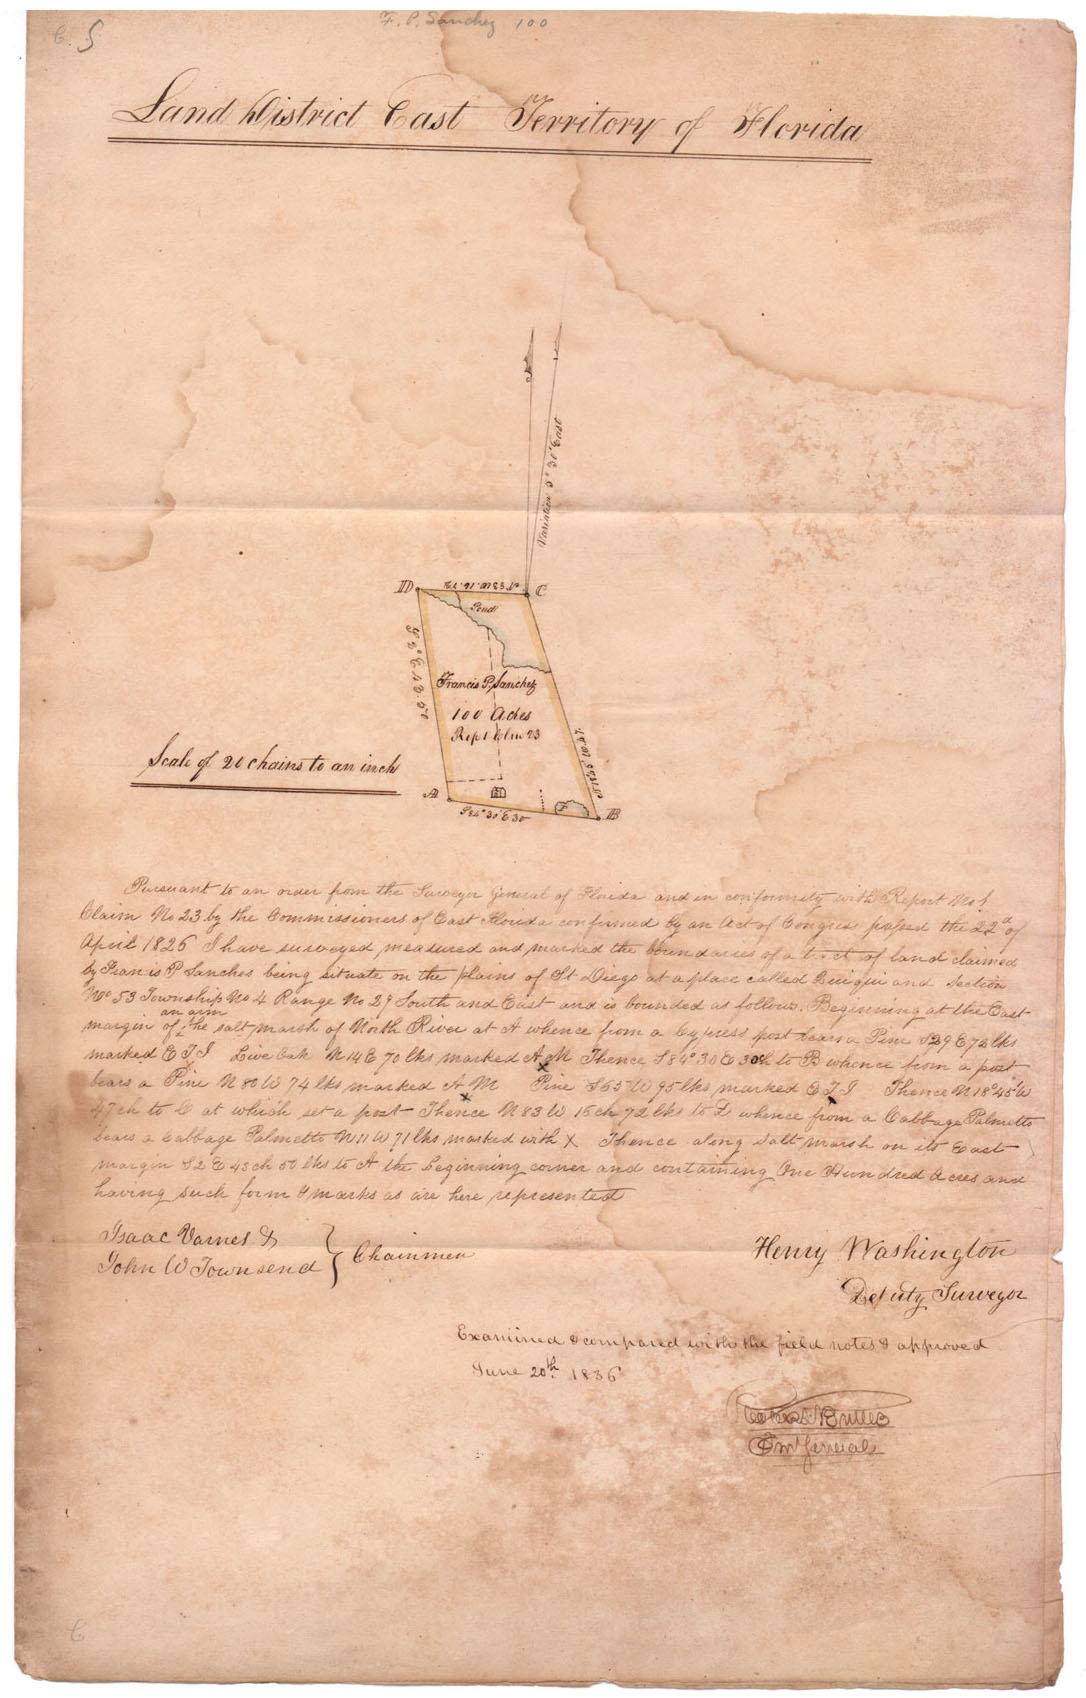 F. P. Sanchez 100
C. S
Land District East Territory of Florida
Variation 5° 30' East
D N 83 W. 16. 72 C
Pond
S. 2° E. 43. 50
Francis P. Sanchez
100 Acres
Rept 1 Clm 23
N 18°45' W. 47.
Scale of 20 chains to an inch
A
B
S 84° 30' E 30
Pursuant to an order from the Surveyor General of Florida and in conformity with Report No 1
Claim No 23 by the Commissioners of East Florida confirmed by an Act of Congress passed the 22d of
April 1826 I have surveyed, measured and marked the boundaries of a tract of land claimed
by Francis P Sanches being situate on the plains of St Diego at a place called and Section
No 53 Township No 4 Range No 29 South and East and is bounded as follows. Beginning at the East
an arm
margin of ^ the salt marsh of North River at A whence from a Cypress post bears a Pine S29 E 72 lks
marked Live Oak N 14 E 70 lks marked Thence S 84° 30 E 30ch to B whence from a post
bears a Pine N 80 W 74 lks marked A M Pine S 65 W 95 lks marked Thence N 18° 45' W
47 ch to C at which set a post Thence N 83 W 16 ch 72 lks to D whence from a Cabbage Palmetto
bears a Cabbage Palmetto N 11 W 71 lks marked with X Thence along salt marsh on its East
margin S 2 E 43 ch 50 lks to A the beginning corner and containing One Hundred Acres and
having such form & marks as are here represented
Isaac Varnes &
John W Townsend } Chainmen
Henry Washington
Deputy Surveyor
Examined & compared with the field notes & approved
June 20th 1836
Robert Butler
General
C